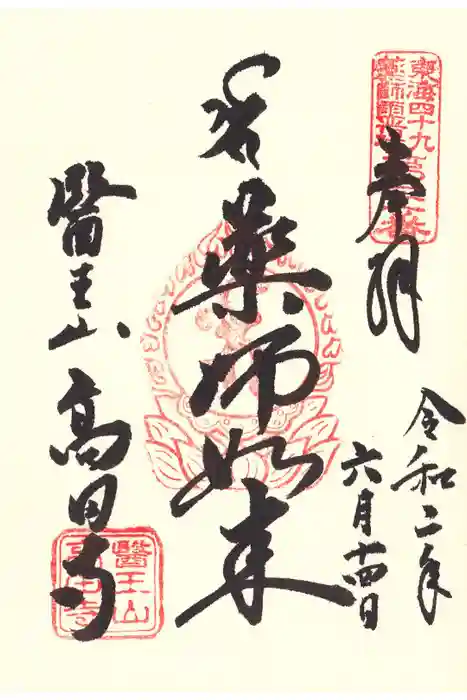 奉拝
令和二年
六月十四日
薬師如来
醫王山 高田寺
東海四十九
薬師霊場
醫王山
高田寺